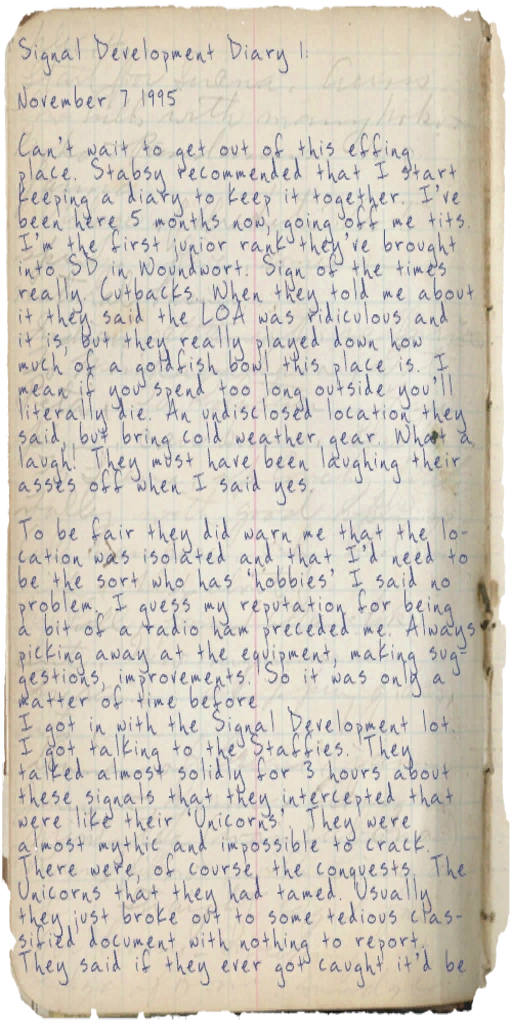 Signal Development Diary 1:
November 7 1995
Can't wait to get out of this effing
place. Stabsy recommended that I start
keeping a diary to keep it together. I've
been here 5 months now, going off me tits.
I'm the first junior rank they've brought
into SD in Woundwort. Sign of the times
really. Cutbacks. When they told me about
it they said the LOA was ridiculous and
it is, but they really played down how
much of a goldfish bowl this place is. I
mean if you spend too long outside you'll
literally die. An undisclosed location they
said, but bring cold weather gear. What a
laugh! They must have been laughing their
asses off when I said yes.
To be fair they did warn me that the lo-
cation was isolated and that I'd need to
be the sort who has 'hobbies' I said no
problem. I guess my reputation for being
a bit of a radio ham preceded me. Always
picking away at the equipment, making sug-
gestions, improvements. So it was only a
matter of time before
I got in with the Signal Development lot.
I got talking to the Staffies. They
talked almost solidly for 3 hours about
these signals that they intercepted that
were like their 'Unicorns'. They were
almost mythic and impossible to crack.
There were, of course, the conquests. The
Unicorns that they had tamed. Usually
they just broke out to some tedious clas-
sified document with nothing to report.
They said if they ever got caught it'd be